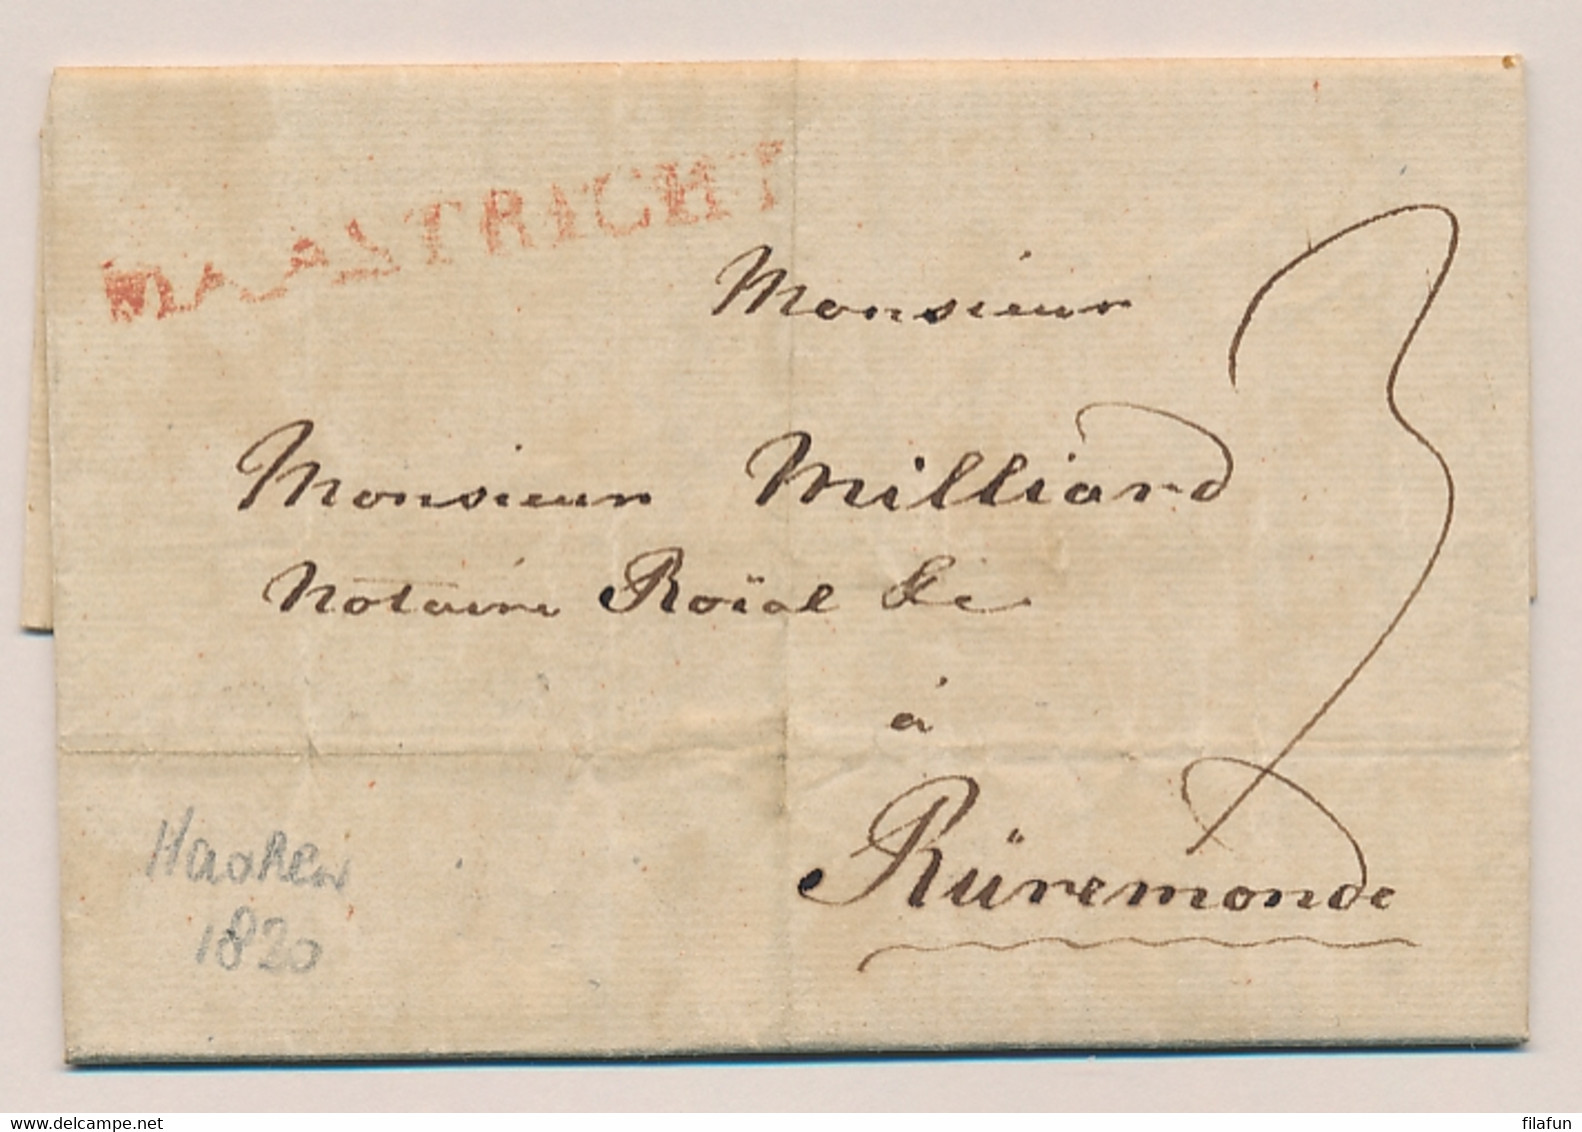 MAASTRICHT
Monsieur
Monsieur Milliard
Notaire Roïal &c
à
Rüremonde
3
Haaren
1820
delcampe.net
filafun